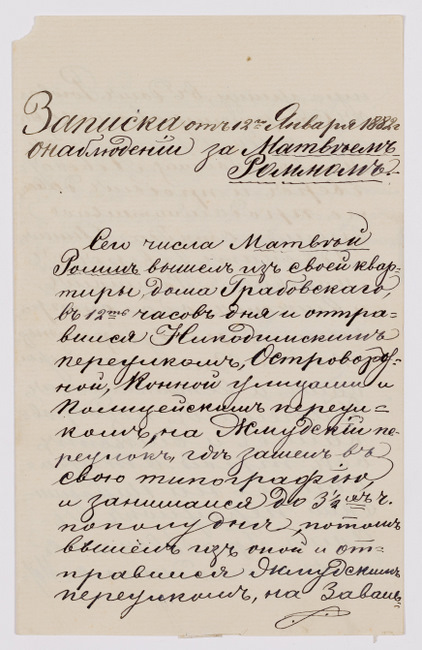 Записка отъ 12го Января 1882г
о наблюденіи за Матвѣемъ
Роммомъ.
Сего числа Матвѣй
Роммъ вышел изъ своей квар-
тиры, дома Грабовскаго,
въ 12ть часовъ дня и отпра-
вился Никодимскимъ
переулкомъ, Островорот-
ной, Конной улицами и
Полицейскимъ переул-
комъ, на Жмудскій пе-
реулокъ, гдѣ зашел въ
свою типографію,
и занимался до 3½ ч.
пополудня, потомъ
вышелъ изъ оной и от-
правился Жмудскимъ
переулкомъ, на Заваль-